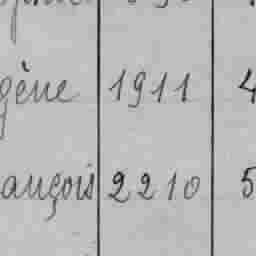 gène 1911 4
ançois 2210 5